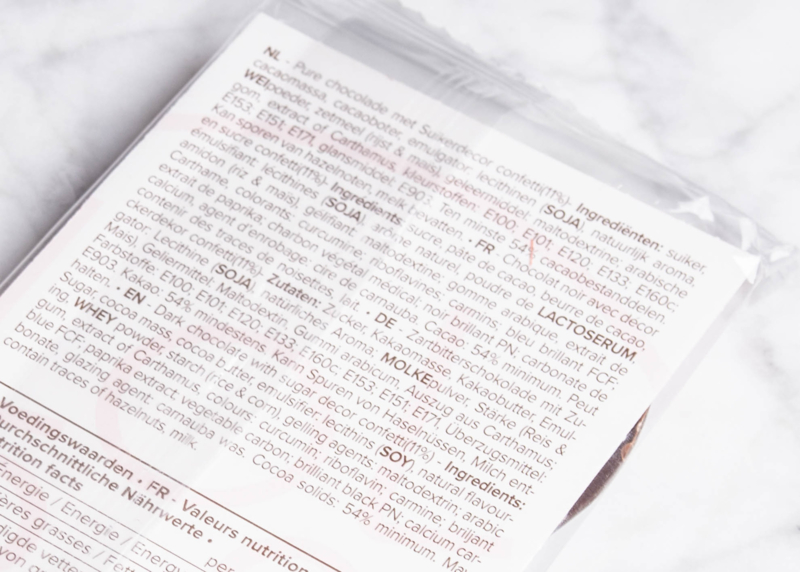 NL - Pure chocolade met Suikerdecor confetti(11%). Ingrediënten: suiker,
cacaomassa, cacaoboter, emulgator: lecithinen (SOJA), natuurlijk aroma,
WEIpoeder, zetmeel (rijst & mais), geleermiddel: maltodextrine; arabische
gom, extract of Carthamus, kleurstoffen: E100, E101, E120, E133, E160c,
E153, E151, E171, glansmiddel: E903. Ten minste 54% cacaobestanddelen
Kan sporen van hazelnoten, melk bevatten. • FR : Chocolat noir avec décor
en sucre confetti(11%). Ingrédients: sucre, pâte de cacao, beurre de cacao,
émulsifiant: lécithines (SOJA), arôme naturel, poudre de LACTOSERUM,
amidon (riz & mais), gélifiant: maltodextrine; gomme arabique, extrait de
Carthame, colorants: curcumine; riboflavines, carmins; bleu brillant FCF;
extrait de paprika; charbon végétal médical; noir brillant PN; carbonate de
calcium, agent d'enrobage: cire de carnauba, Cacao: 54% minimum. Peut
contenir des traces de noisettes, lait. • DE - Zartbitterschokolade mit Zu-
ckerdekor confetti(11%). Zutaten: Zucker, Kakaomasse, Kakaobutter, Emul-
gator: Lecithine (SOJA), natürliches Aroma; MOLKEpulver, Stärke (Reis &
Mais), Geliermittel: Maltodextin, Gummi arabicum, Auszug aus Carthamus;
Farbstoffe: E100; E101, E120; E133, E160c; E153; E151, E171, Überzugsmittel:
E903, Kakao: 54% mindestens. Kann Spuren von Haselnüssen, Milch ent-
halten. • EN - Dark chocolate with sugar decor confetti(11%) - Ingredients:
Sugar, cocoa mass, cocoa butter, emulsifier: lecithins (SOY), natural flavour-
ing, WHEY powder, starch (rice & corn), gelling agents: maltodextrin; arabic
gum, extract of Carthamus, colours: curcumin; riboflavin; carmine; briljant
blue FCF; paprika extract; vegetable carbon; brilliant black PN; calcium car-
bonate, glazing agent: carnauba was. Cocoa solids: 54% minimum. May
contain traces of hazelnuts, milk.
Voedingswaarden • FR - Valeurs nutrition
Durchschnittliche Nährwerte •
trition facts
Énergie / Energie / Energy
ières grasses / Fett
digde vette